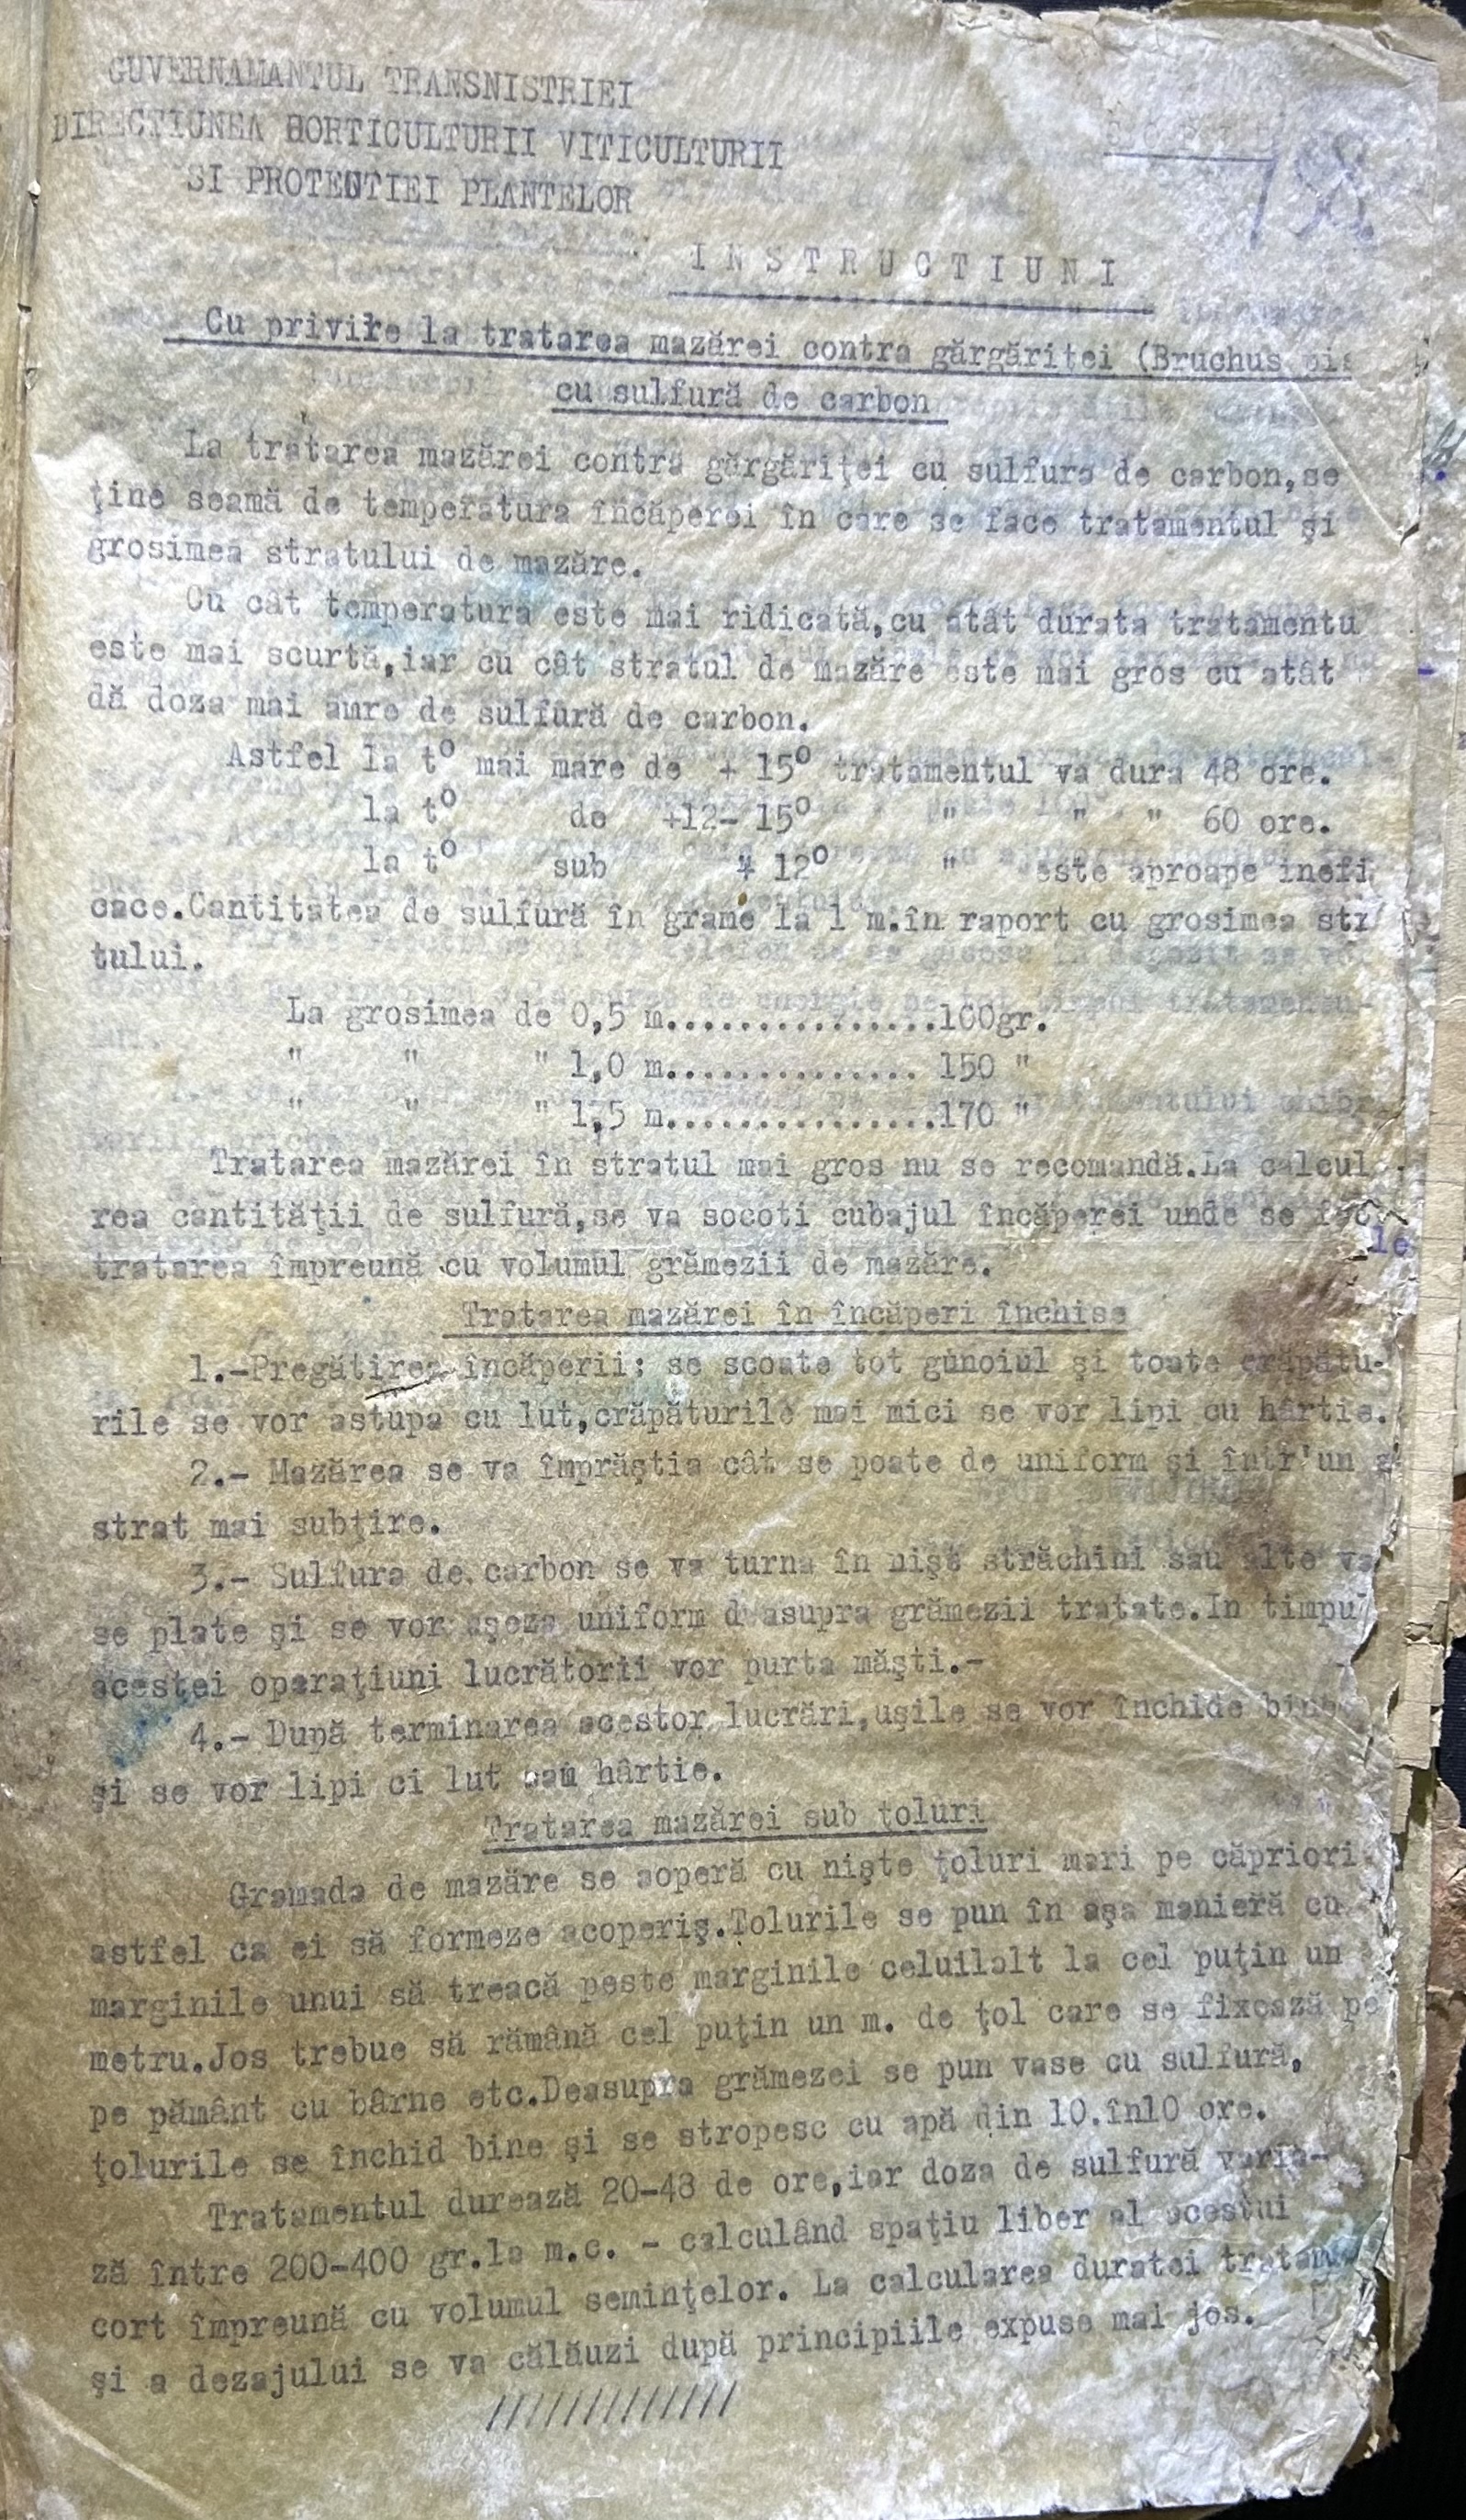 GUVERNAMANTUL TRANSNISTRIEI
DIRECTIUNEA HORTICULTURII VITICULTURII
SI PROTEUTIEI PLANTELOR
198.
INSTRUCTIUNI
Cu privire la tratarea mazărei contra gărgăriței (Bruchus pis
cu sulfură de carbon
La tratarea mazărei contra gărgăriţei cu sulfura de carbon,se
ţine seamă de temperatura încăperei în care se face tratamentul şi
grosimea stratului de mazăre.
Cu cât temperatura este mai ridicată,cu atât durata tratamentu
este mai scurtă,iar cu cât stratul de mazăre este mai gros cu atât
dă doza mai amre de sulfură de carbon.
Astfel la tº mai mare de + 15º tratamentul va dura 48 ore.
la tº de +12- 15º " " " 60 ore.
la tº sub + 12º " este aproape inefi
cace.Cantitatea de sulfură în grame la 1 m.în raport cu grosimea str
tului.
La grosimea de 0,5 m................100gr.
" " " 1,0 m............... 150 "
" " " 1,5 m................170 "
Tratarea mazărei în stratul mai gros nu se recomandă.La calcul
rea cantităţii de sulfură,se va socoti cubajul încăperei unde se
tratarea împreună cu volumul grămezii de mazăre.
Tratarea mazărei în încăperi închise
1.-Pregătirea încăperii: se scoate tot gunoiul şi toate crăpătu-
rile se vor astupa cu lut,crăpăturile mai mici se vor lipi cu hârtie.
2.- Mazărea se va împrăştia cât se poate de uniform şi într'un
strat mai subţire.
3.- Sulfura de carbon se va turna în nişt străchini sau alte va
se plate şi se vor aşeza uniform deasupra grămezii tratate.In timpu
acestei operaţiuni lucrătorii vor purta măşti.-
4.- După terminarea acestor lucrări,uşile se vor închide bine
şi se vor lipi ci lut sau hârtie.
Tratarea mazărei sub ţoluri
Gramada de mazăre se aoperă cu nişte ţoluri mari pe căpriori
astfel ca ei să formeze acoperiş.Tolurile se pun în aşa manieră cu
marginile unui să treacă peste marginile celuilalt la cel puţin un
metru.Jos trebue să rămână cel puţin un m. de ţol care se fixează pe
pe pământ cu bârne etc.Deasupra grămezei se pun vase cu sulfură,
ţolurile se închid bine şi se stropesc cu apă din 10.în10 ore.
Tratamentul durează 20-48 de ore,iar doza de sulfură varia-
ză între 200-400 gr.la m.c. - calculând spaţiu liber al acestui
cort împreună cu volumul seminţelor. La calcularea duratei tratam
şi a dezajului se va călăuzi după principiile expuse mai jos.
/////////////